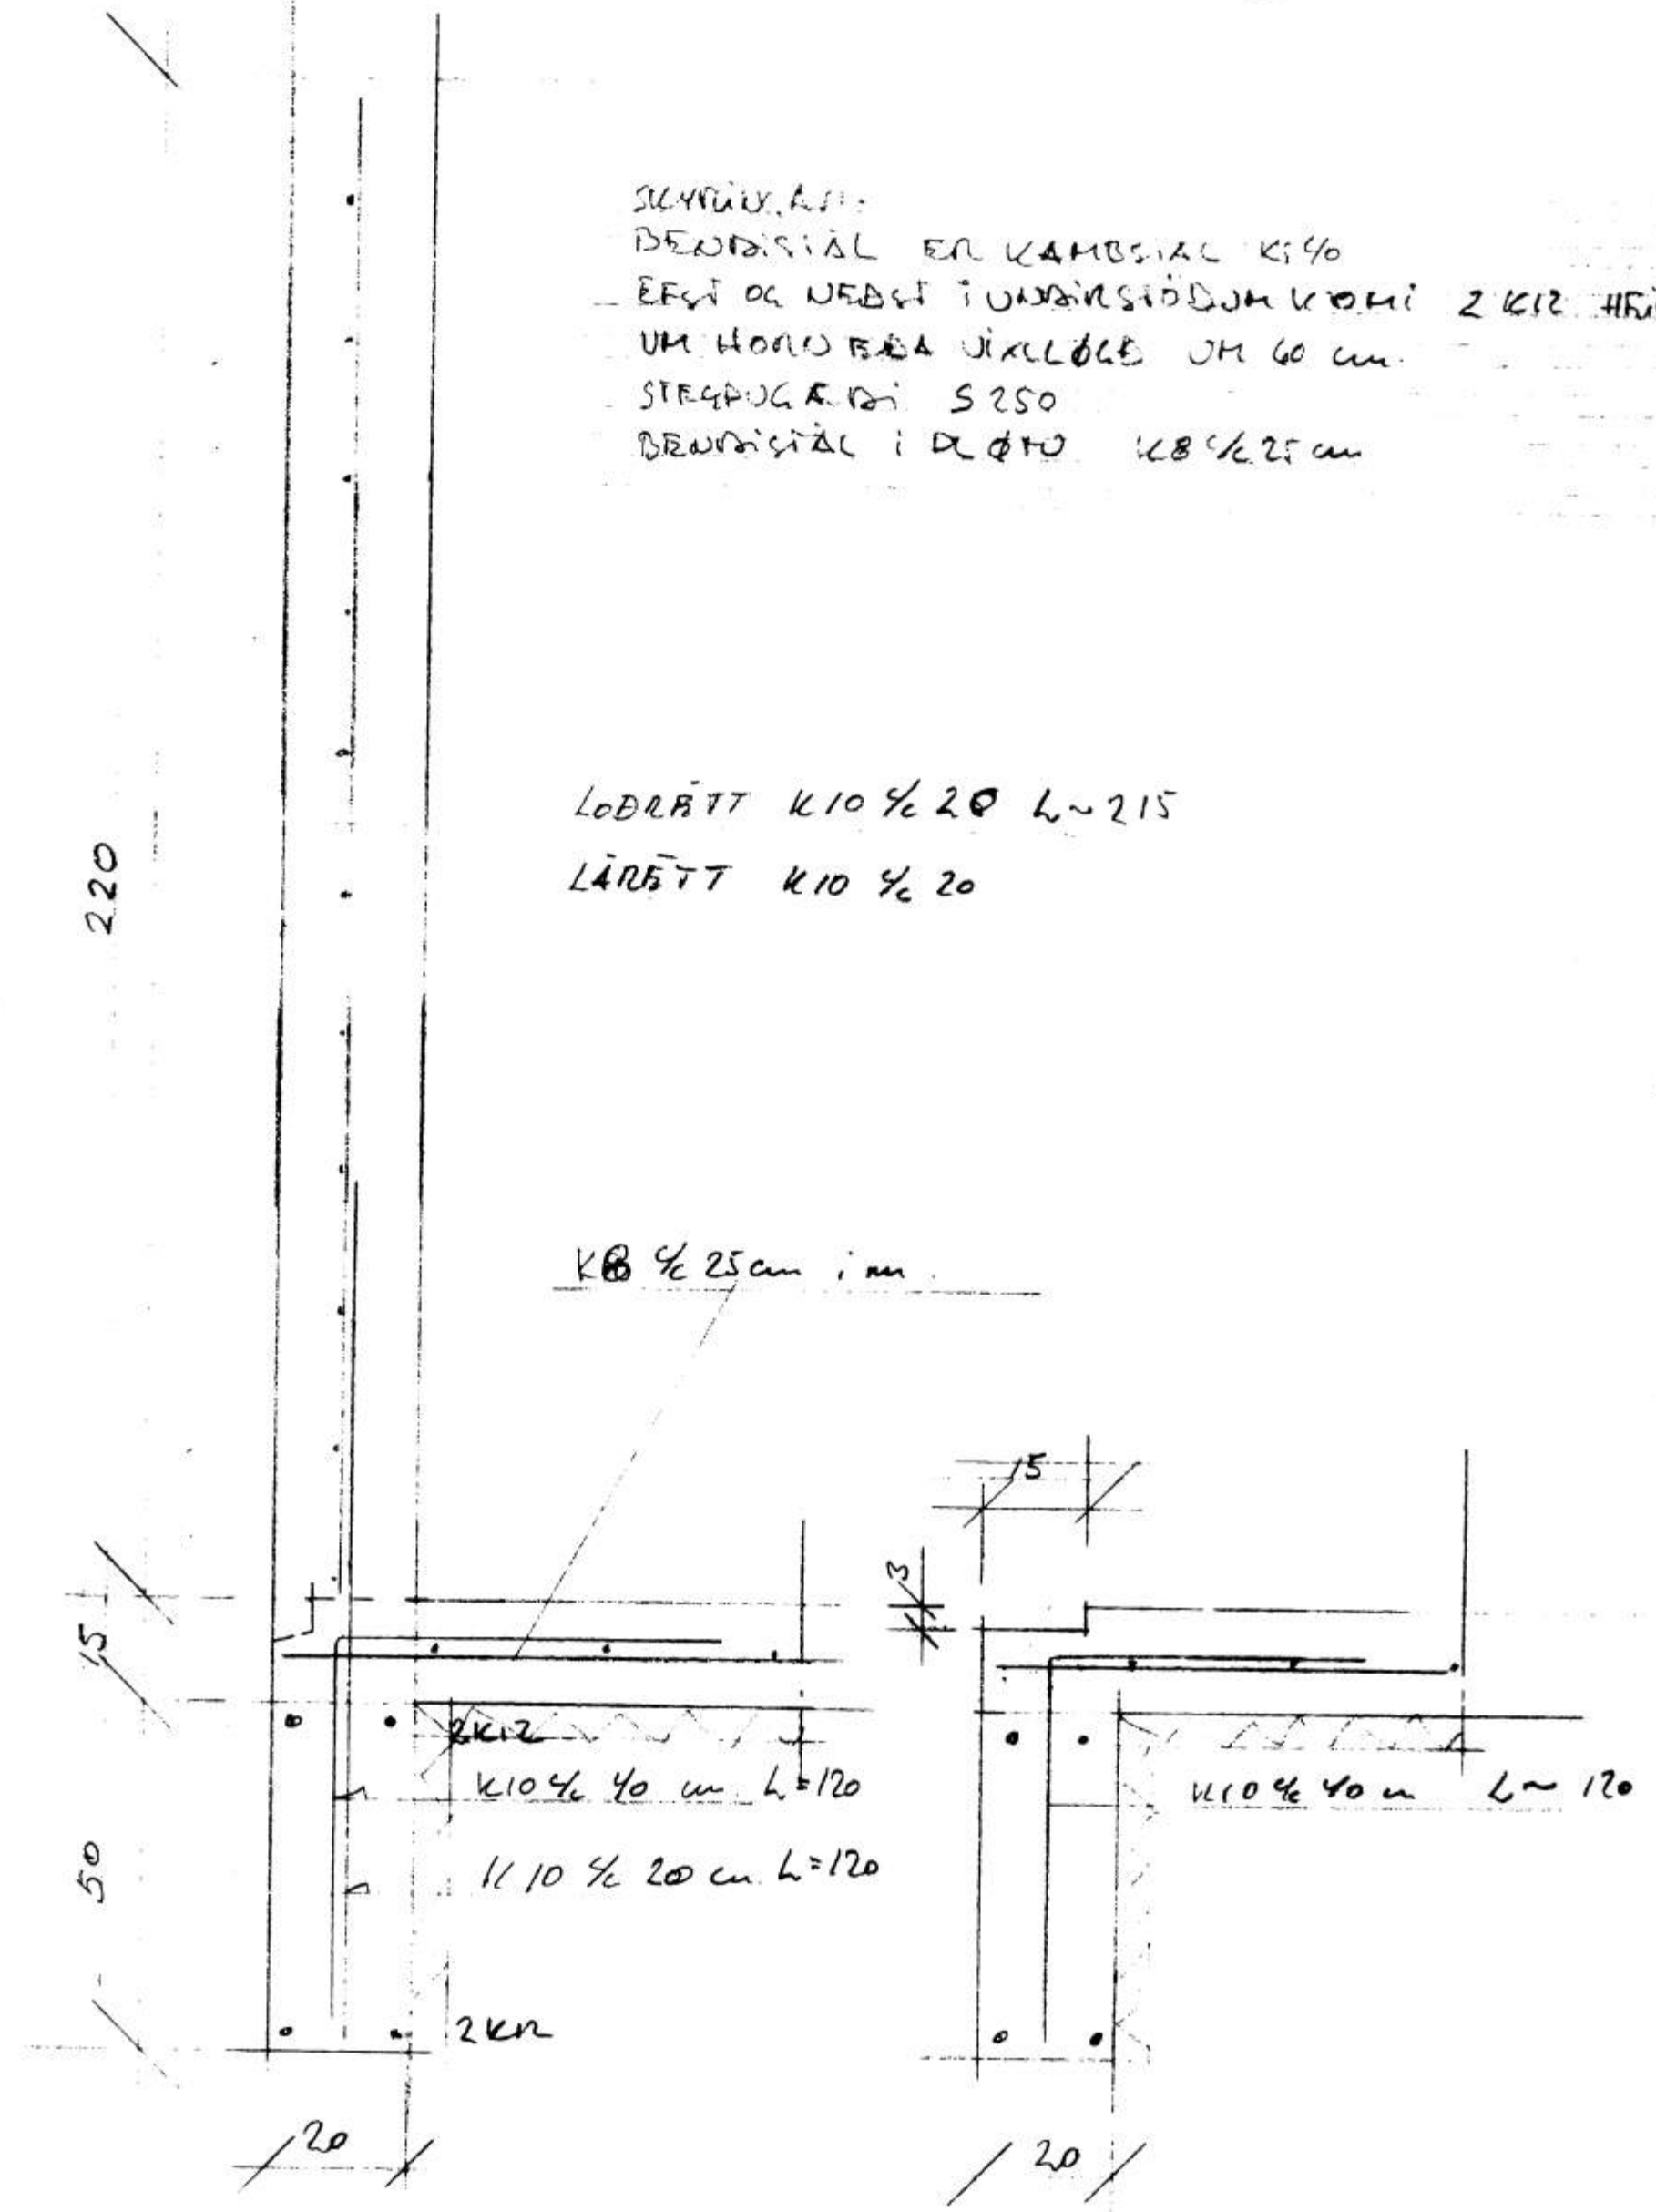 SKÝRINGAR:
BENDISTÁL ER KAMBSTÁL
EFST OG NEÐST Í UNDIRSTÖÐUM KOMI 2 K12
UM HORN EÐA VÍXLLÖGÐ UM 60 cm.
S250
BENDISTÁL Í PLÖTU K8 c/c 25 cm
LÓÐRÉTT K10 c/c 20 L~215
220
LÁRÉTT K10 c/c 20
K8 c/c 25 cm
15
3
15
2K12
K10 c/c 40 cm L=120
K10 c/c 40 cm L~120
50
K10 c/c 20 cm L=120
2K12
20
20